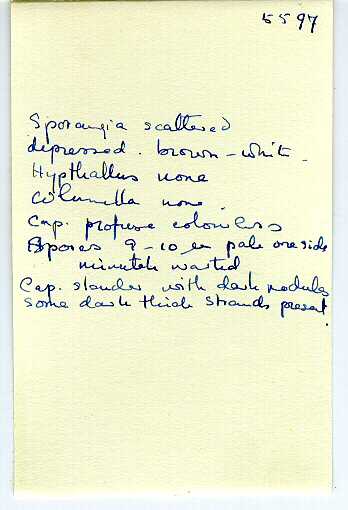 5597
Sporangia scattered
depressed. brown-white.
Hypthallus none
Columella none.
Cap. profuse colourless
Spores 9-10 µ pale one side
minutely warted
Cap. slender with dark nodules
some dark thick strands present.